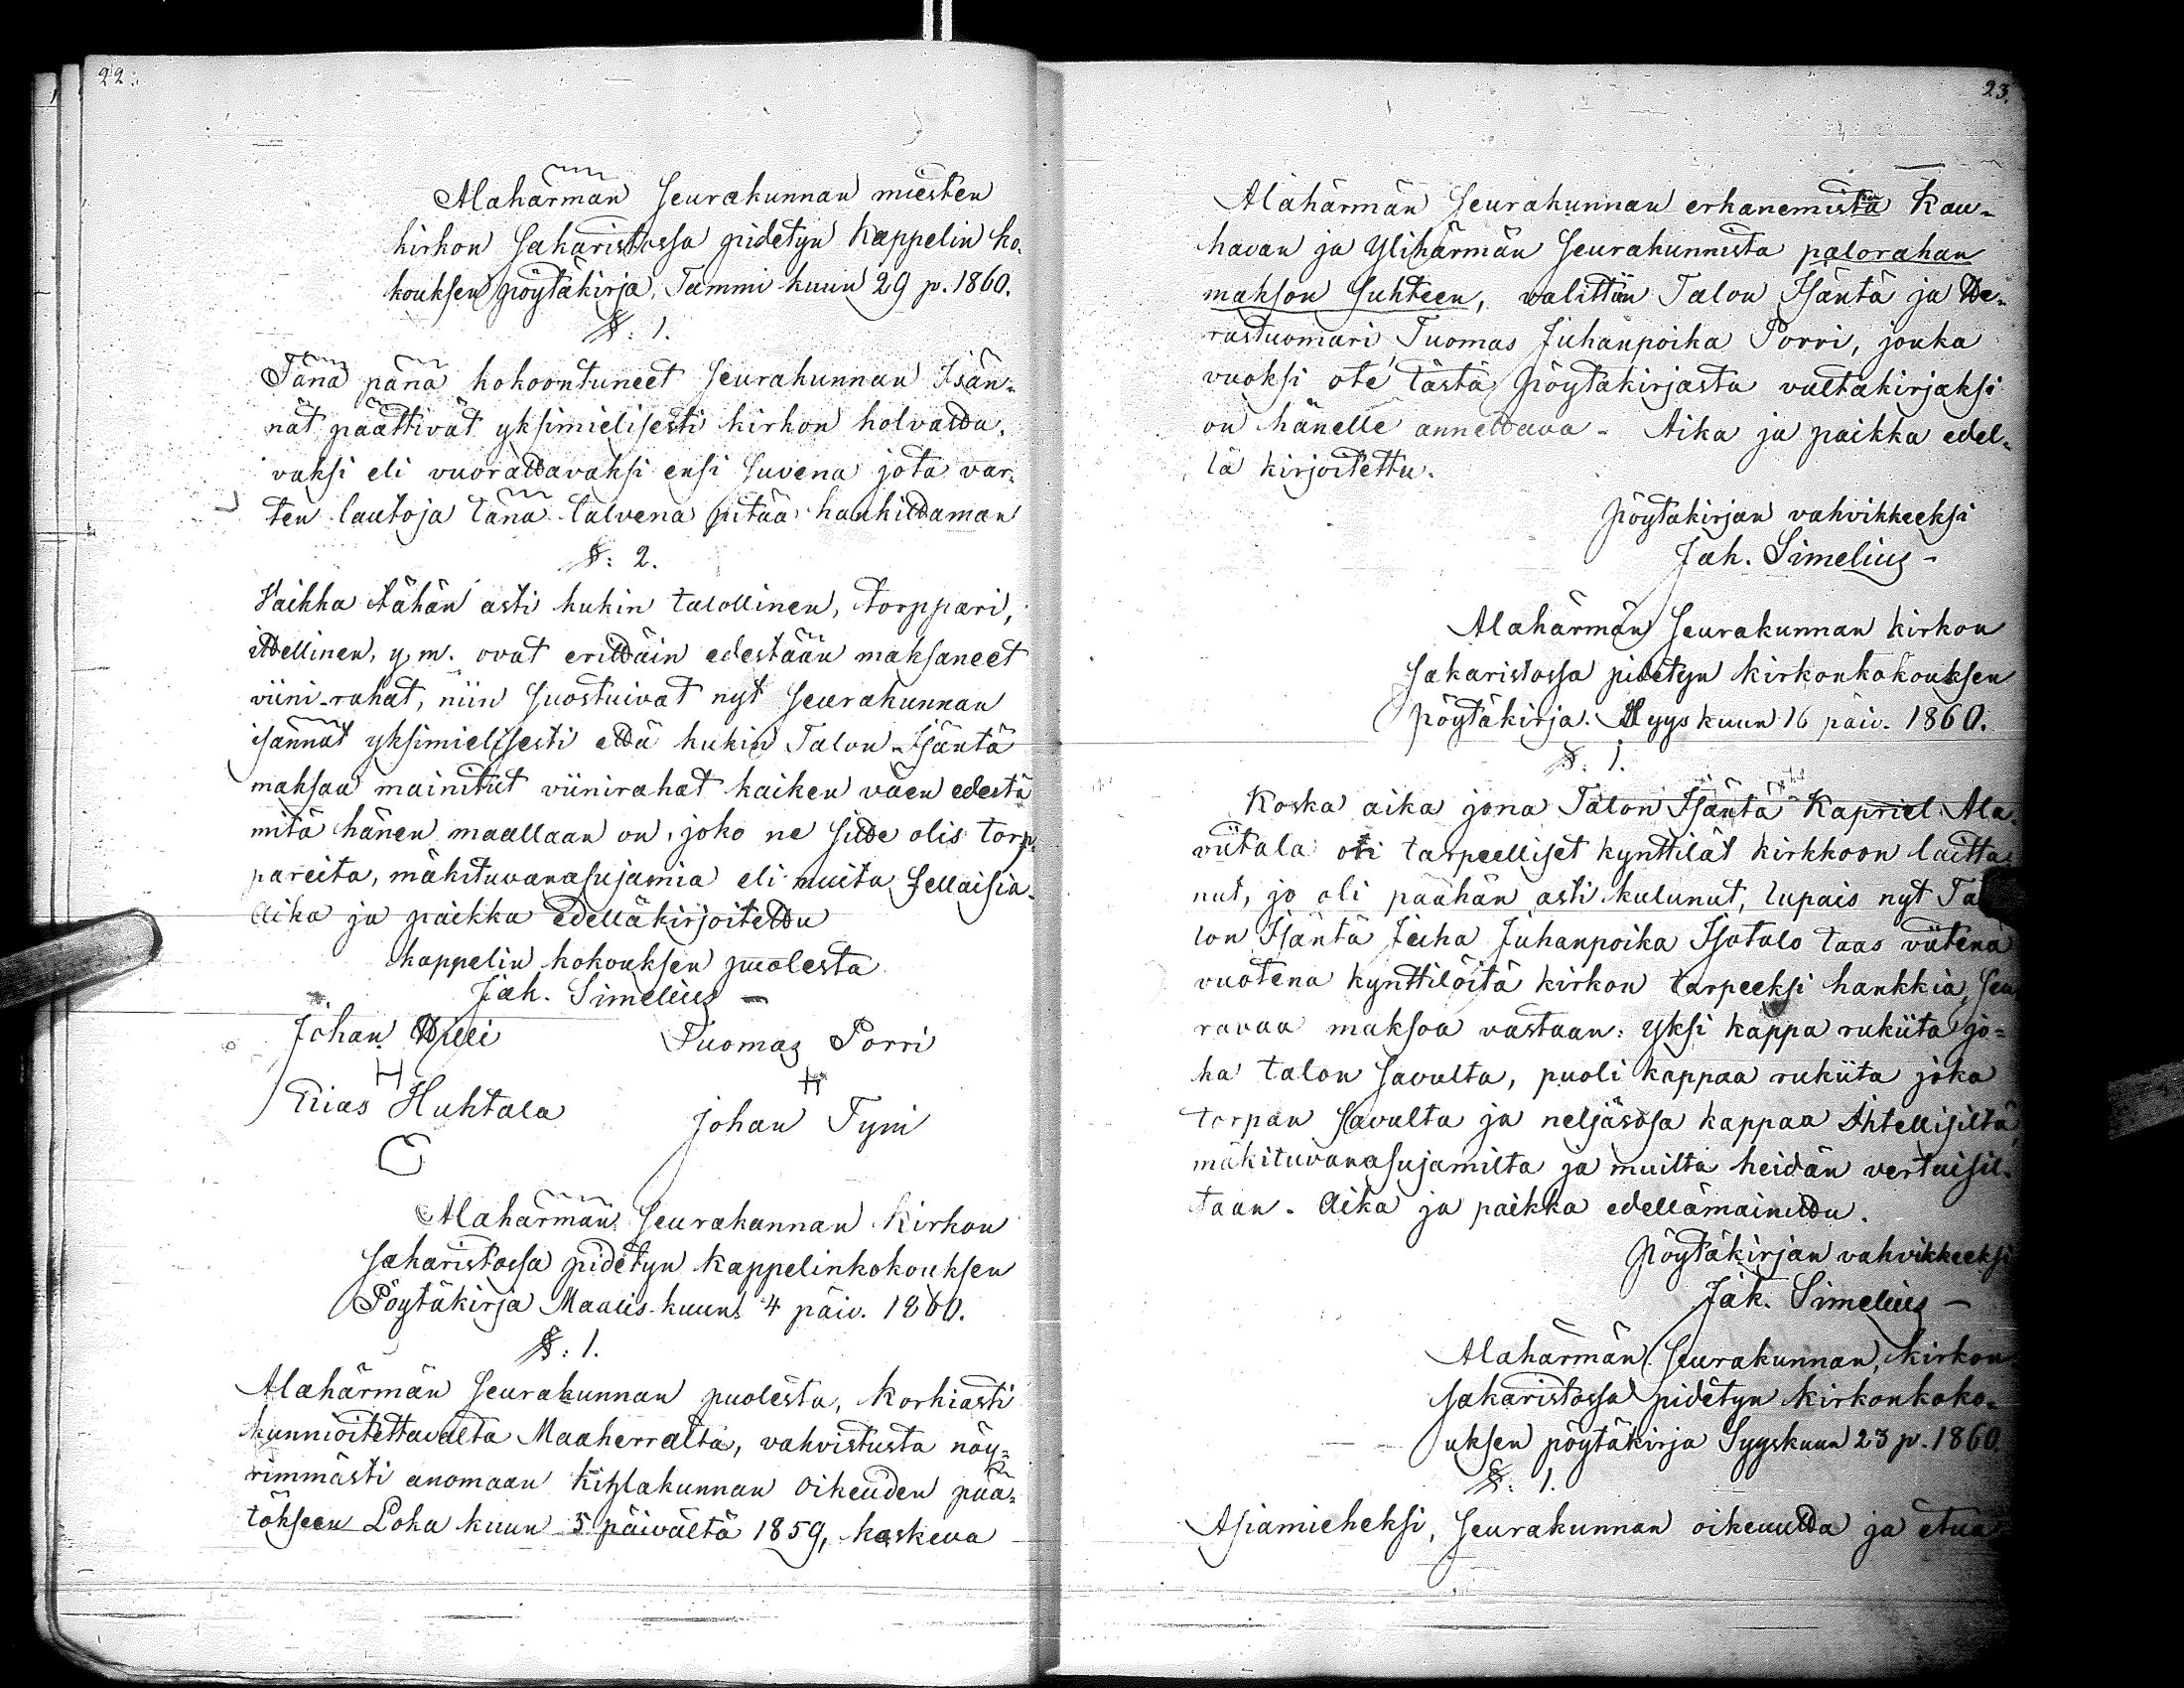 22.
Alahärmän Seurakunnan miesten
kirkon Sakaristossa pidetyn Kappelin ko-
kouksen pöytäkirja, Tammi kuun 29 p. 1860.
§: 1.
Tänä pänä kokoontuneet Seurakunnan Isän-
nät päättivät yksimielisesti kirkon holvatta-
vaksi eli vuorattavaksi ensi Suvena jota var-
ten lautoja tänä talvena pitää hankittaman
§: 2.
Vaikka tähän asti kukin talollinen, torppari,
ittellinen, y. m. ovat erittäin edestään maksaneet
viini-rahat, niin Suostuivat nyt Seurakunnan
isännät yksimielisesti että kukin Talon-Isäntä
maksaa mainitut viinirahat kaiken väen edestä
mitä hänen maallaan on, joko ne Sitte olis torp-
pareita, mäkituvanasujamia eli muita Sellaisia.
Aika ja paikka edelläkirjoitettu
kappelin kokouksen puolesta
Jak. Simelius –
Johan Tuomas Porri
Elias Huhtala Johan Tyni
Alahärmän Seurakunnan Kirkon
Sakaristossa pidetyn Kappelinkokouksen
Pöytäkirja Maalis-kuun 4 päiv. 1860.
§: 1.
Alahärmän Seurakunnan puolesta, Korkiasti
kunnioitettavalta Maaherralta, vahvistusta nöy-
rimmästi anomaan Kihlakunnan Oikeuden pää-
tökseen Loka kuun 5 päivältä 1859, koskeva
23.
Alahärmän Seurakunnan erkanemista Kau-
havan ja Ylihärmän Seurakunnista palorahan
makson Suhteen, valittiin Talon Isäntä ja He-
rastuomari Tuomas Juhanpoika Porri, jonka
vuoksi ote tästä Pöytäkirjasta valtakirjaksi
on hänelle annettava – Aika ja paikka edel-
lä kirjoitettu.
Pöytäkirjan vahvikkeeksi
Jak. Simelius –
Alahärmän Seurakunnan kirkon
Sakaristossa pidetyn kirkonkokouksen
pöytäkirja. Syys kuun 16 päiv. 1860.
§: 1.
Koska aika jona Talon Isäntä Kapriel Ala-
viitala oli tarpeelliset kynttilät kirkkoon laitta-
nut, jo oli päähän asti kulunut, lupais nyt Ta-
lon Isäntä Juha Juhanpoika Isotalo taas viitenä
vuotena kynttilöitä kirkon tarpeeksi hankkia, Seu-
ravaa maksoa vastaan: yksi kappa rukiita jo-
ka talon Savulta, puoli kappaa rukiita joka
torpan Savulta ja neljäsosa kappaa Ihtellisiltä,
mäkituvanasujamilta ja muilta heidän vertaisil-
taan. Aika ja paikka edellämainittu.
Pöytäkirjan vahvikkeeksi
Jak. Simelius –
Alahärmän Seurakunnan, kirkon
Sakaristossa pidetyn kirkonkoko-
uksen pöytäkirja Syyskuun 23 p. 1860.
§: 1.
Asiamieheksi, Seurakunnan oikeutta ja etua